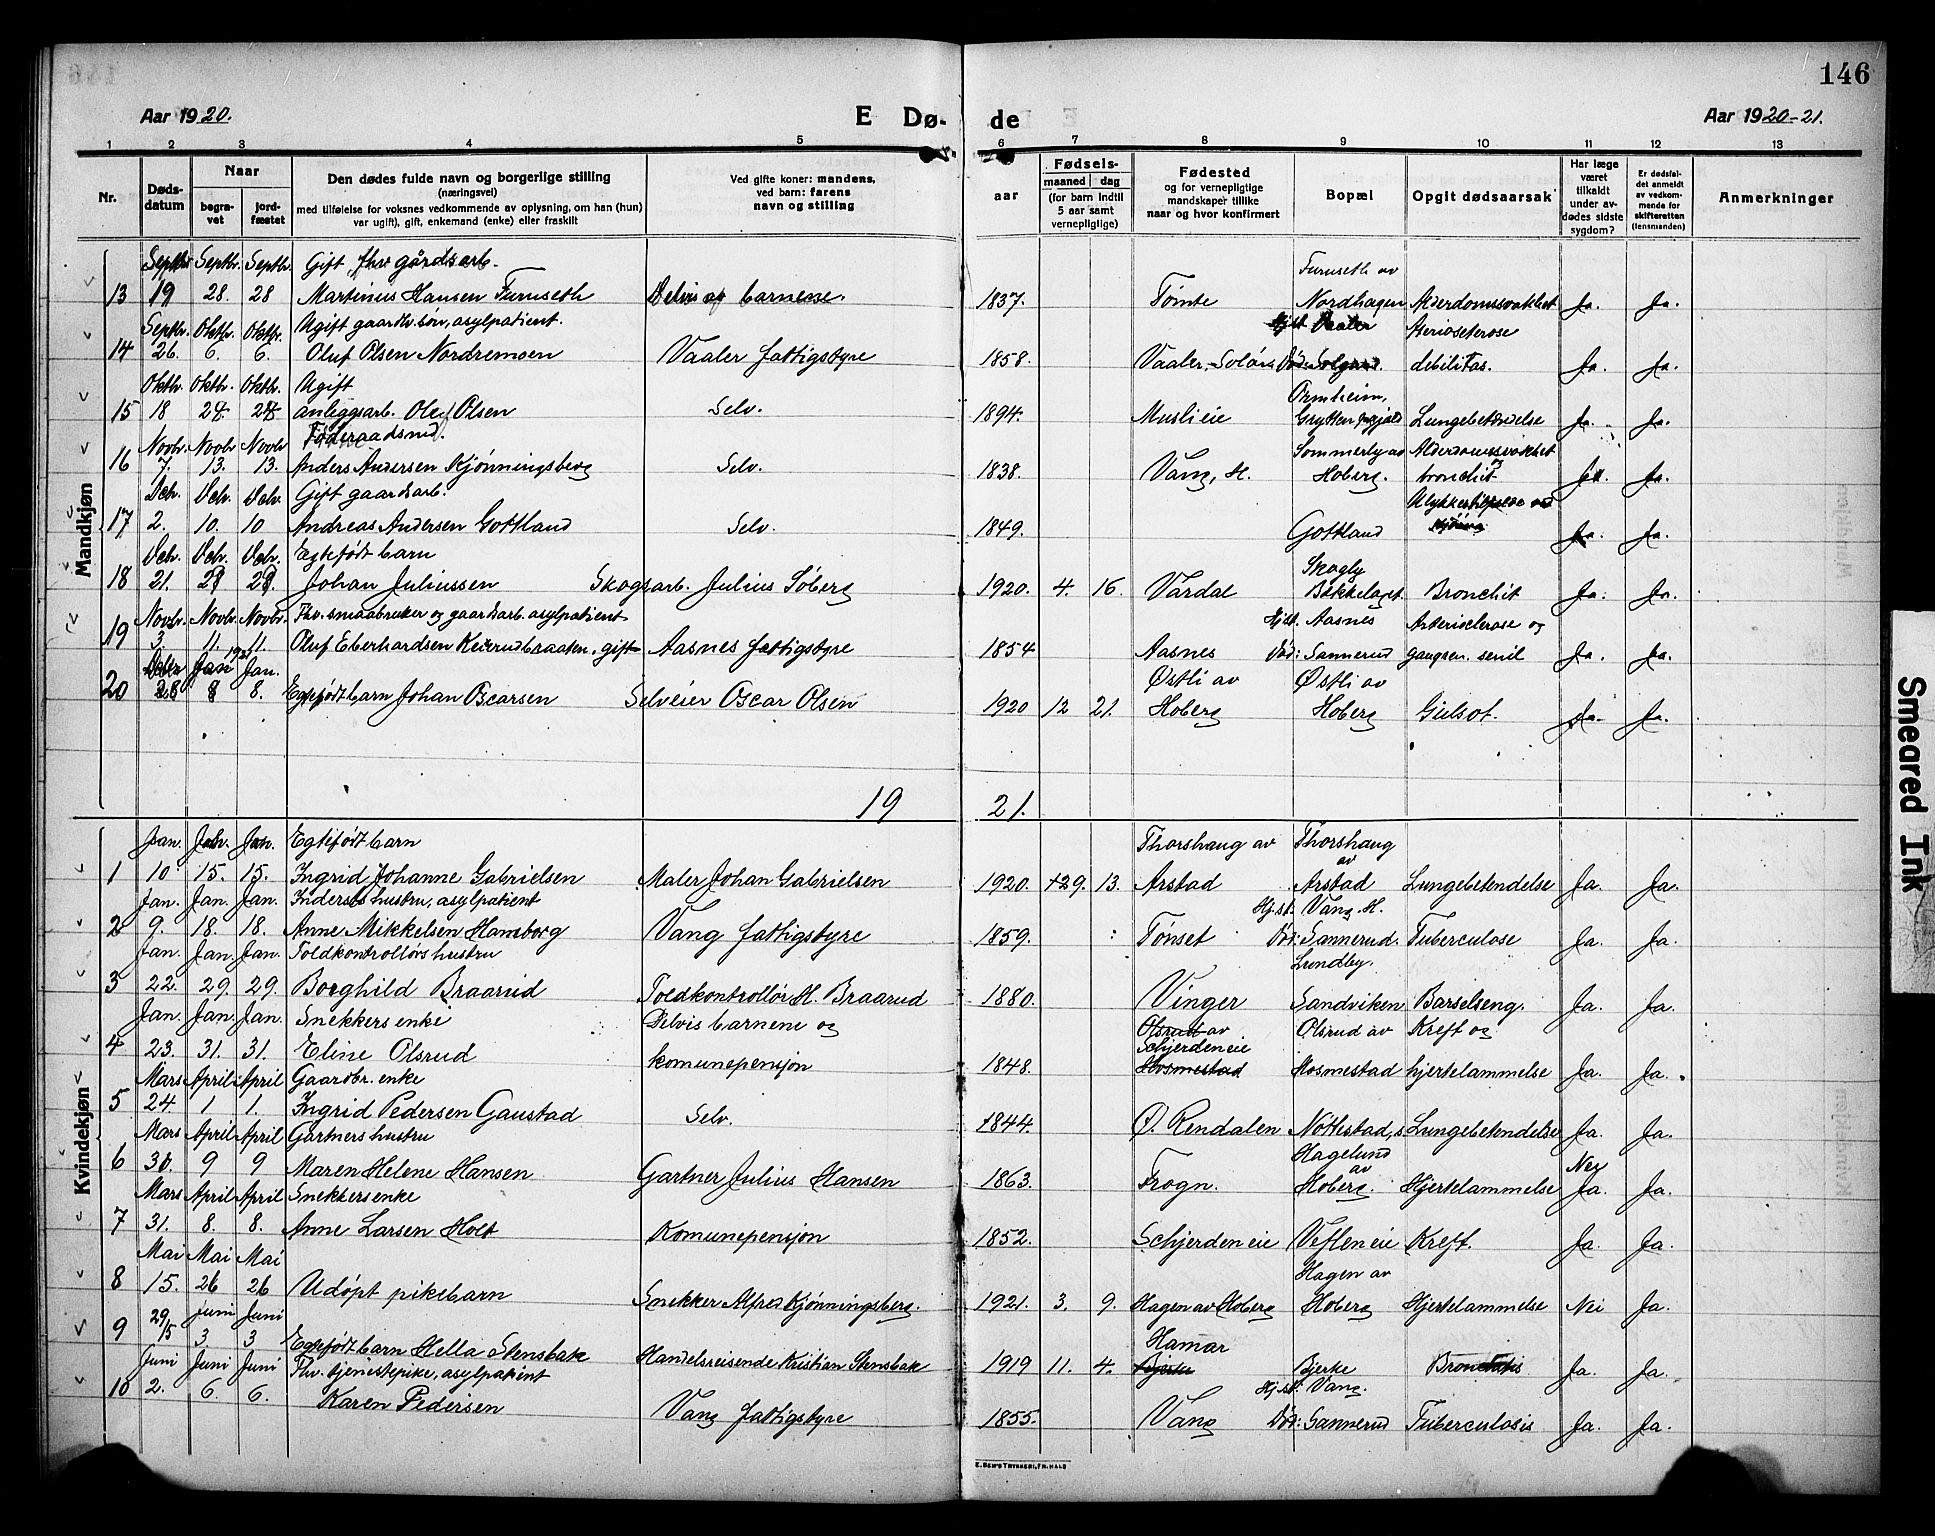 146
Aar 1920.
E Dø-
de
Aar 1920-21.
1 2 3 4 5 6 7 8 9 10 11 12 13
Nr.
Døds-
datum
Naar
begra-
vet
jord-
fæstet
Den dødes fulde navn og borgerlige stilling
(næringsvei)
med tilføielse for voksnes vedkommende av oplysning, om han (hun)
var ugift), gift, enkemand (enke) eller fraskilt
Ved gifte koner: mandens,
ved barn: farens
navn og stilling
aar
Fødsels-
maaned dag
(for barn indtil
5 aar samt
vernepligtige)
Fødested
og for vernepligtige
mandskaper tillike
naar og hvor konfirmert
Bopæl
Opgit dødsaarsak
Har læge
været
tilkaldt
under av-
dødes sidste
sygdom?
Er dødsfal-
det anmeldt
av vedkom-
mende for
skifteretten
(lensmanden)
Anmerkninger
Mandkjøn
Septbr. Septbr. Septbr. Gift, fhv gårdsarb. Furuseth av
13 19 28. 28 Martinius Hansen Furuseth Delvis af barnene. 1837. Tømte Nordhagen Alderdomssvakhet Ja. Ja.
Septbr. Oktbr. Oktbr. Ugift gaardbr.søn, asylpatient. Hjst. Vaaler
14 26. 6. 6. Oluf Olsen Nordremoen Vaaler fattigstyre 1858. Vaaler, Solør debilitas. Ja. Ja.
Oktbr. Oktbr. Oktbr. Ugift Ormheim,
15 18 24. 24 anlegsarb. Ole Olsen Selv. 1894. Muslieie Lungebetendelse Ja. Ja.
Novbr. Novbr. Novbr Føderaadsmd. Sommerly av Alderdomssvakhet
16 7. 13. 13. Anders Andersen Kjønningsberg Selv. 1838. Vang, H. Hoberg. og bronchit Ja. Ja.
Dcbr. Dcbr. Dcbr. Gift gaardsarb.
17 2. 10. 10 Andreas Andersen Gottland Selv. 1849. Gottland Ja. Ja.
Dcbr. Dcbr. Dcbr. Egtefødt barn Skogly
18 21. 28 28. Johan Juliussen Skogsarb. Julius Søberg 1920. 4. 16. Vardal Bækkelaget. Bronchit Ja. Ja.
Novbr. Novbr. Novbr. Fhv. smaabruker og gaardsarb. asylpatient Hjst. Aasnes Arteriosclerose og
19 3. 11. 11. Oluf Eberhardsen Keiserudbraaten. gift Aasnes fattigstyre 1854 Aasnes Død: Sannerud gangren. senil Ja. Ja.
1921
Dcbr Jan Jan. Østli av Østli av
20 28 8 8. Egtefødt barn Johan Oscarsen Selveier Oscar Olsen 1920 12 21. Hoberg Hoberg Gulsot. Ja. Ja.
19 21.
Kvindekjøn
Jan. Jan. Jan. Egtefødt barn Thorshaug av Thorshaug av
1 10. 15. 15. Ingrid Johanne Gabrielsen Maler Johan Gabrielsen 1920. 13. Arstad Arstad Lungebetendelse Ja. Ja.
Jan. Jan. Jan. Indersts hustru, asylpatient Hj.st. Vang. H.
2 9. 18. 18. Anne Mikkelsen Hamborg Vang fattigstyre 1859. Tønset Død: Sannerud. Tuberculose Ja. Ja.
Jan. Jan. Jan. Toldkontrollørs hustru Lundby.
3 22. 29. 29. Borghild Braarud Toldkontrollør H. Braarud 1880. Vinger Sandviken Barselseng. Ja. Ja.
Jan. Jan. Jan. Snekkers enke Delvis barnene og Olsrud av Olsrud av Kreft og
Schjerdeneie
4 23. 31. 31. Eline Olsrud komunepensjon 1848. Hosmestad Hosmestad hjertelammelse Ja. Ja.
Mars April April Gaardbr. enke
5 24. 1 1. Ingrid Pedersen Gaustad Selv. 1844. Ø. Rendalen Nøttestad, s Lungebetendelse Ja. Ja.
Mars April April Gartners hustru Hagelund av Nei
6 30. 9 9 Maren Helene Hansen Gartner Julius Hansen 1863. Frogn. Hoberg. Hjertelammelse Ja. Ja.
Mars April April Snekkersenke
7 31. 8. 8. Anne Larsen Holt Komunepensjon 1852. Schjerdeneie Vefleneie Kreft. Ja. Ja.
Mai Mai Mai Hagen av
8 15. 26 26 Udøpt pikebarn Snekker Alfred Kjønningsberg. 1921. 3. 9. Hagen av Hoberg Hoberg Hjertelammelse Nei Ja.
29/5 Juni Juni Hamar
9 3 3 Egtefødt barn Hella Stensbak Handelsreisende Kristian Stensbak 1919 11. 4. Bjerke Bjerke Ja. Ja.
Juni Juni Juni Fhv. tjenestepike, asylpatient Hj.st. Vang.
10 2. 6. 6. Karen Pedersen Vang fattigstyre 1855. Vang Død: Sannerud Tuberculosis Ja. Ja.
E. SEM'S TRYKKERI, FR.HALD
Smeared Ink